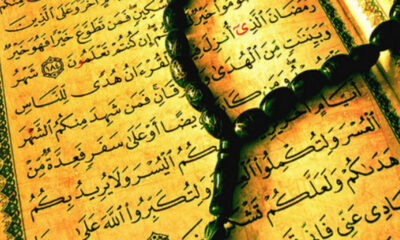 أُخَرَ وَعَلَى الَّذِينَ
مِسْكِينٍ فَمَن تَطَوَّعَ خَيْرًا فَهُوَ خَيْرٌ
إِن كُنتُمْ تَعْلَمُونَ ١٨٤ شَهْرُ
رَمَضَانَ الَّذِي أُنزِلَ الْقُرْءَانُ هُدًى لِّلنَّاسِ
وَبَيِّنَتٍ مِّنَ الْهُدَى فَمَن شَهِدَ مِنكُمُ الشَّهْرَ
وَمَن كَا مَرِيضًا أَوْ عَلَى سَفَرٍ فَعِدَّةٌ مِّنْ
أَيَّامٍ الْيُسْرَ وَلَا يُرِيدُ بِكُمُ
الْعُسْرَ وَلِتُكْمِلُوا وَلِتُكَبِّرُوا اللَّهَ عَلَى
هَدَىكُمْ وَلَعَلَّكُمْ تَشْ
ادِي عَنِّي فَإِنِّي